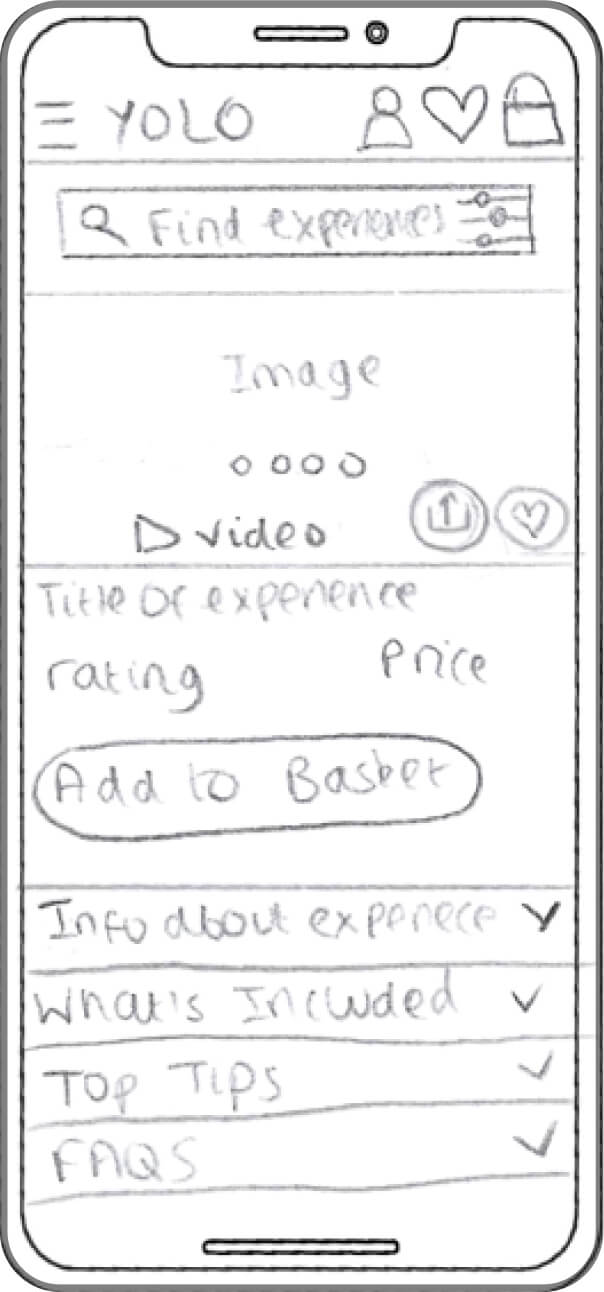 YOLO
Find experiences
Image
video
Title of experience
rating Price
Add to Basket
Info about experiece
What's Included
Top Tips
FAQS